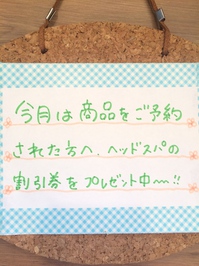 今月は商品をご予約
された方へ、ヘッドスパの
割引券をプレゼント中〜!!